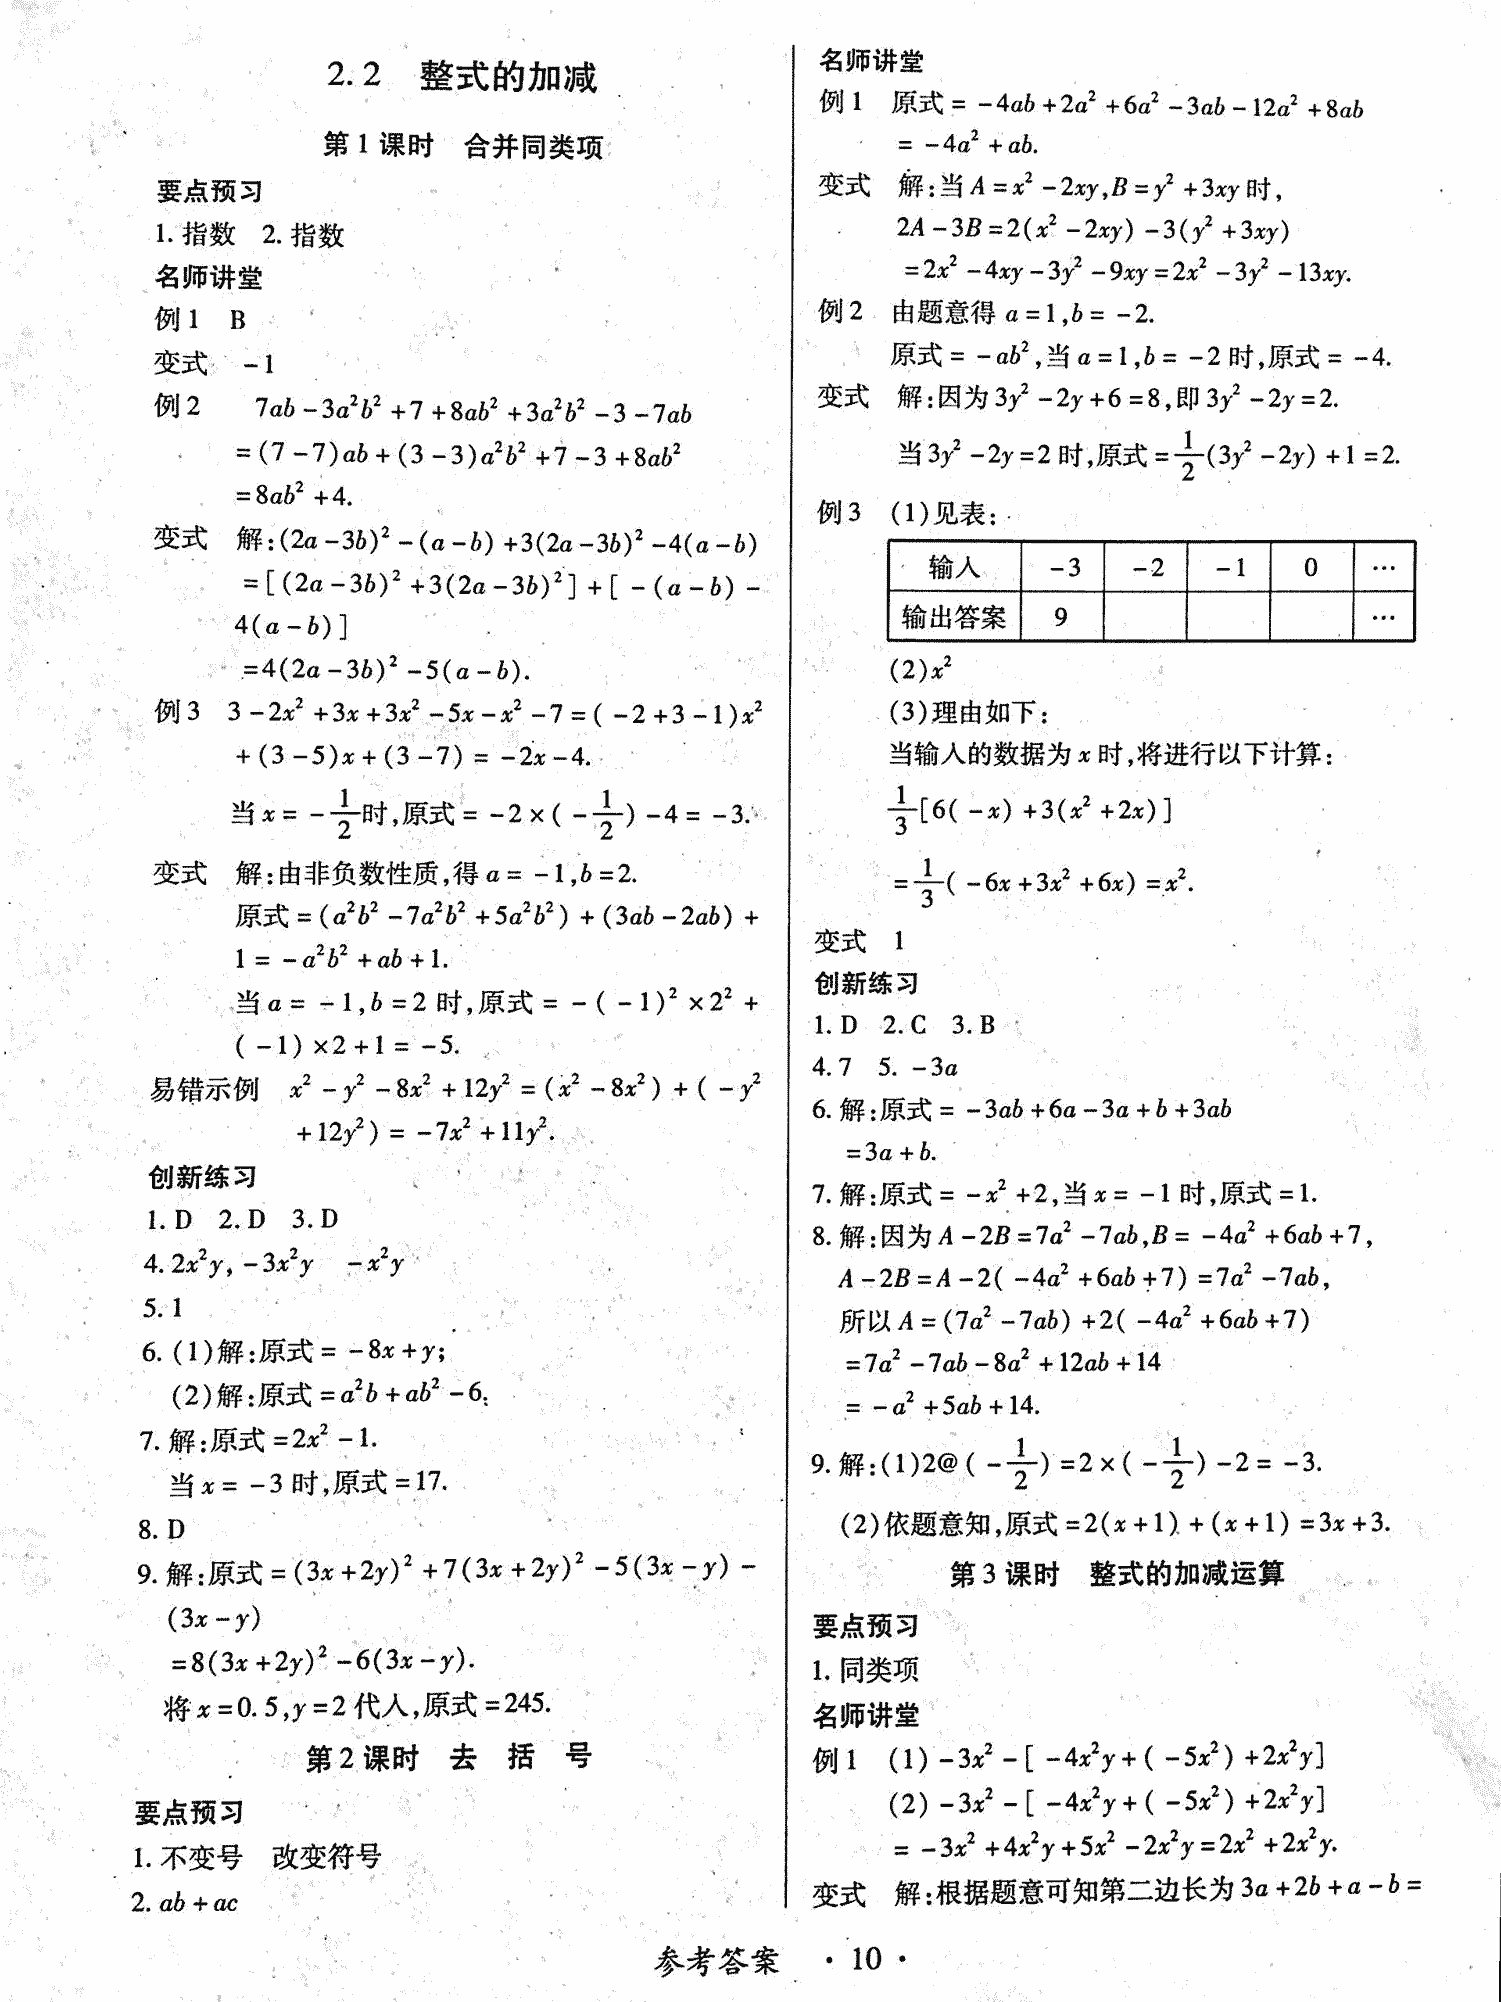 2.2 整式的加减
第1课时 合并同类项
要点预习
1. 指数 2. 指数
名师讲堂
例1 B
变式 -1
例2 7ab-3a²b²+7+8ab²+3a²b²-3-7ab
=(7-7)ab+(3-3)a²b²+7-3+8ab²
=8ab²+4.
变式 解:(2a-3b)²-(a-b)+3(2a-3b)²-4(a-b)
=[(2a-3b)²+3(2a-3b)²]+[-(a-b)-
4(a-b)]
=4(2a-3b)²-5(a-b).
例3 3-2x²+3x+3x²-5x-x²-7=(-2+3-1)x²
+(3-5)x+(3-7)=-2x-4.
当x=-1/2时,原式=-2×(-1/2)-4=-3.
变式 解:由非负数性质,得a=-1,b=2.
原式=(a²b²-7a²b²+5a²b²)+(3ab-2ab)+
1=-a²b²+ab+1.
当a=-1,b=2时,原式=-(-1)²×2²+
(-1)×2+1=-5.
易错示例 x²-y²-8x²+12y²=(x²-8x²)+(-y²
+12y²)=-7x²+11y².
创新练习
1. D 2. D 3. D
4. 2x²y,-3x²y -x²y
5. 1
6. (1)解:原式=-8x+y;
(2)解:原式=a²b+ab²-6.
7. 解:原式=2x²-1.
当x=-3时,原式=17.
8. D
9. 解:原式=(3x+2y)²+7(3x+2y)²-5(3x-y)-
(3x-y)
=8(3x+2y)²-6(3x-y).
将x=0.5,y=2代人,原式=245.
第2课时 去 括 号
要点预习
1. 不变号 改变符号
2. ab+ac
名师讲堂
例1 原式=-4ab+2a²+6a²-3ab-12a²+8ab
=-4a²+ab.
变式 解:当A=x²-2xy,B=y²+3xy时,
2A-3B=2(x²-2xy)-3(y²+3xy)
=2x²-4xy-3y²-9xy=2x²-3y²-13xy.
例2 由题意得a=1,b=-2.
原式=-ab²,当a=1,b=-2时,原式=-4.
变式 解:因为3y²-2y+6=8,即3y²-2y=2.
当3y²-2y=2时,原式=1/2(3y²-2y)+1=2.
例3 (1)见表:
输入 -3 -2 -1 0 …
输出答案 9 …
(2)x²
(3)理由如下:
当输人的数据为x时,将进行以下计算:
1/3[6(-x)+3(x²+2x)]
=1/3(-6x+3x²+6x)=x².
变式 1
创新练习
1. D 2. C 3. B
4. 7 5. -3a
6. 解:原式=-3ab+6a-3a+b+3ab
=3a+b.
7. 解:原式=-x²+2,当x=-1时,原式=1.
8. 解:因为A-2B=7a²-7ab,B=-4a²+6ab+7,
A-2B=A-2(-4a²+6ab+7)=7a²-7ab,
所以A=(7a²-7ab)+2(-4a²+6ab+7)
=7a²-7ab-8a²+12ab+14
=-a²+5ab+14.
9. 解:(1)2@(-1/2)=2×(-1/2)-2=-3.
(2)依题意知,原式=2(x+1)+(x+1)=3x+3.
第3课时 整式的加减运算
要点预习
1. 同类项
名师讲堂
例1 (1)-3x²-[-4x²y+(-5x²)+2x²y]
(2)-3x²-[-4x²y+(-5x²)+2x²y]
=-3x²+4x²y+5x²-2x²y=2x²+2x²y.
变式 解:根据题意可知第二边长为3a+2b+a-b=
参考答案 ·10·